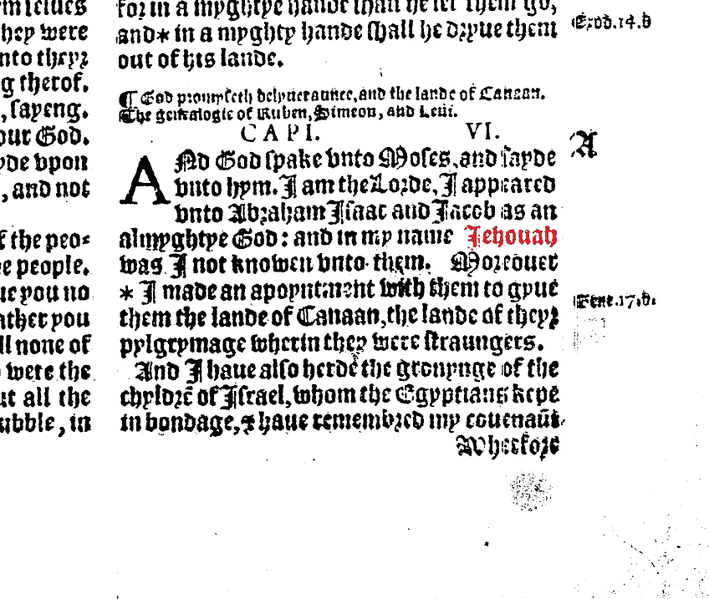 mselues
they were
nto theyr
g therof.
, sayeng.
our God.
yde vpon
, and not
f the peo-
e people.
ue you no
ather you
ll none of
were the
ut all the
ubble, in
for in a myghtye hande shall he let them go,
and* in a myghty hande shall he dryue them
out of his lande.
¶ God promyseth delyueraunce, and the lande of Canaan.
The genealogie of Ruben, Simeon, and Leui.
CAPI. VI.
ANd God spake vnto Moses, and sayde
vnto hym. I am the Lorde, I appeared
vnto Abraham Isaac and Jacob as an
almyghtye God: and in my name Jehouah
was I not knowen vnto them. Moreouer
* I made an apoyntment with them to gyue
them the lande of Canaan, the lande of theyr
pylgrymage wherin they were straungers.
And I haue also herde the gronynge of the
chyldrē of Israel, whom the Egyptians kepe
in bondage, & haue remembred my couenaūt.
Wherfore
Exod.14.b
A
Gene.17.b.